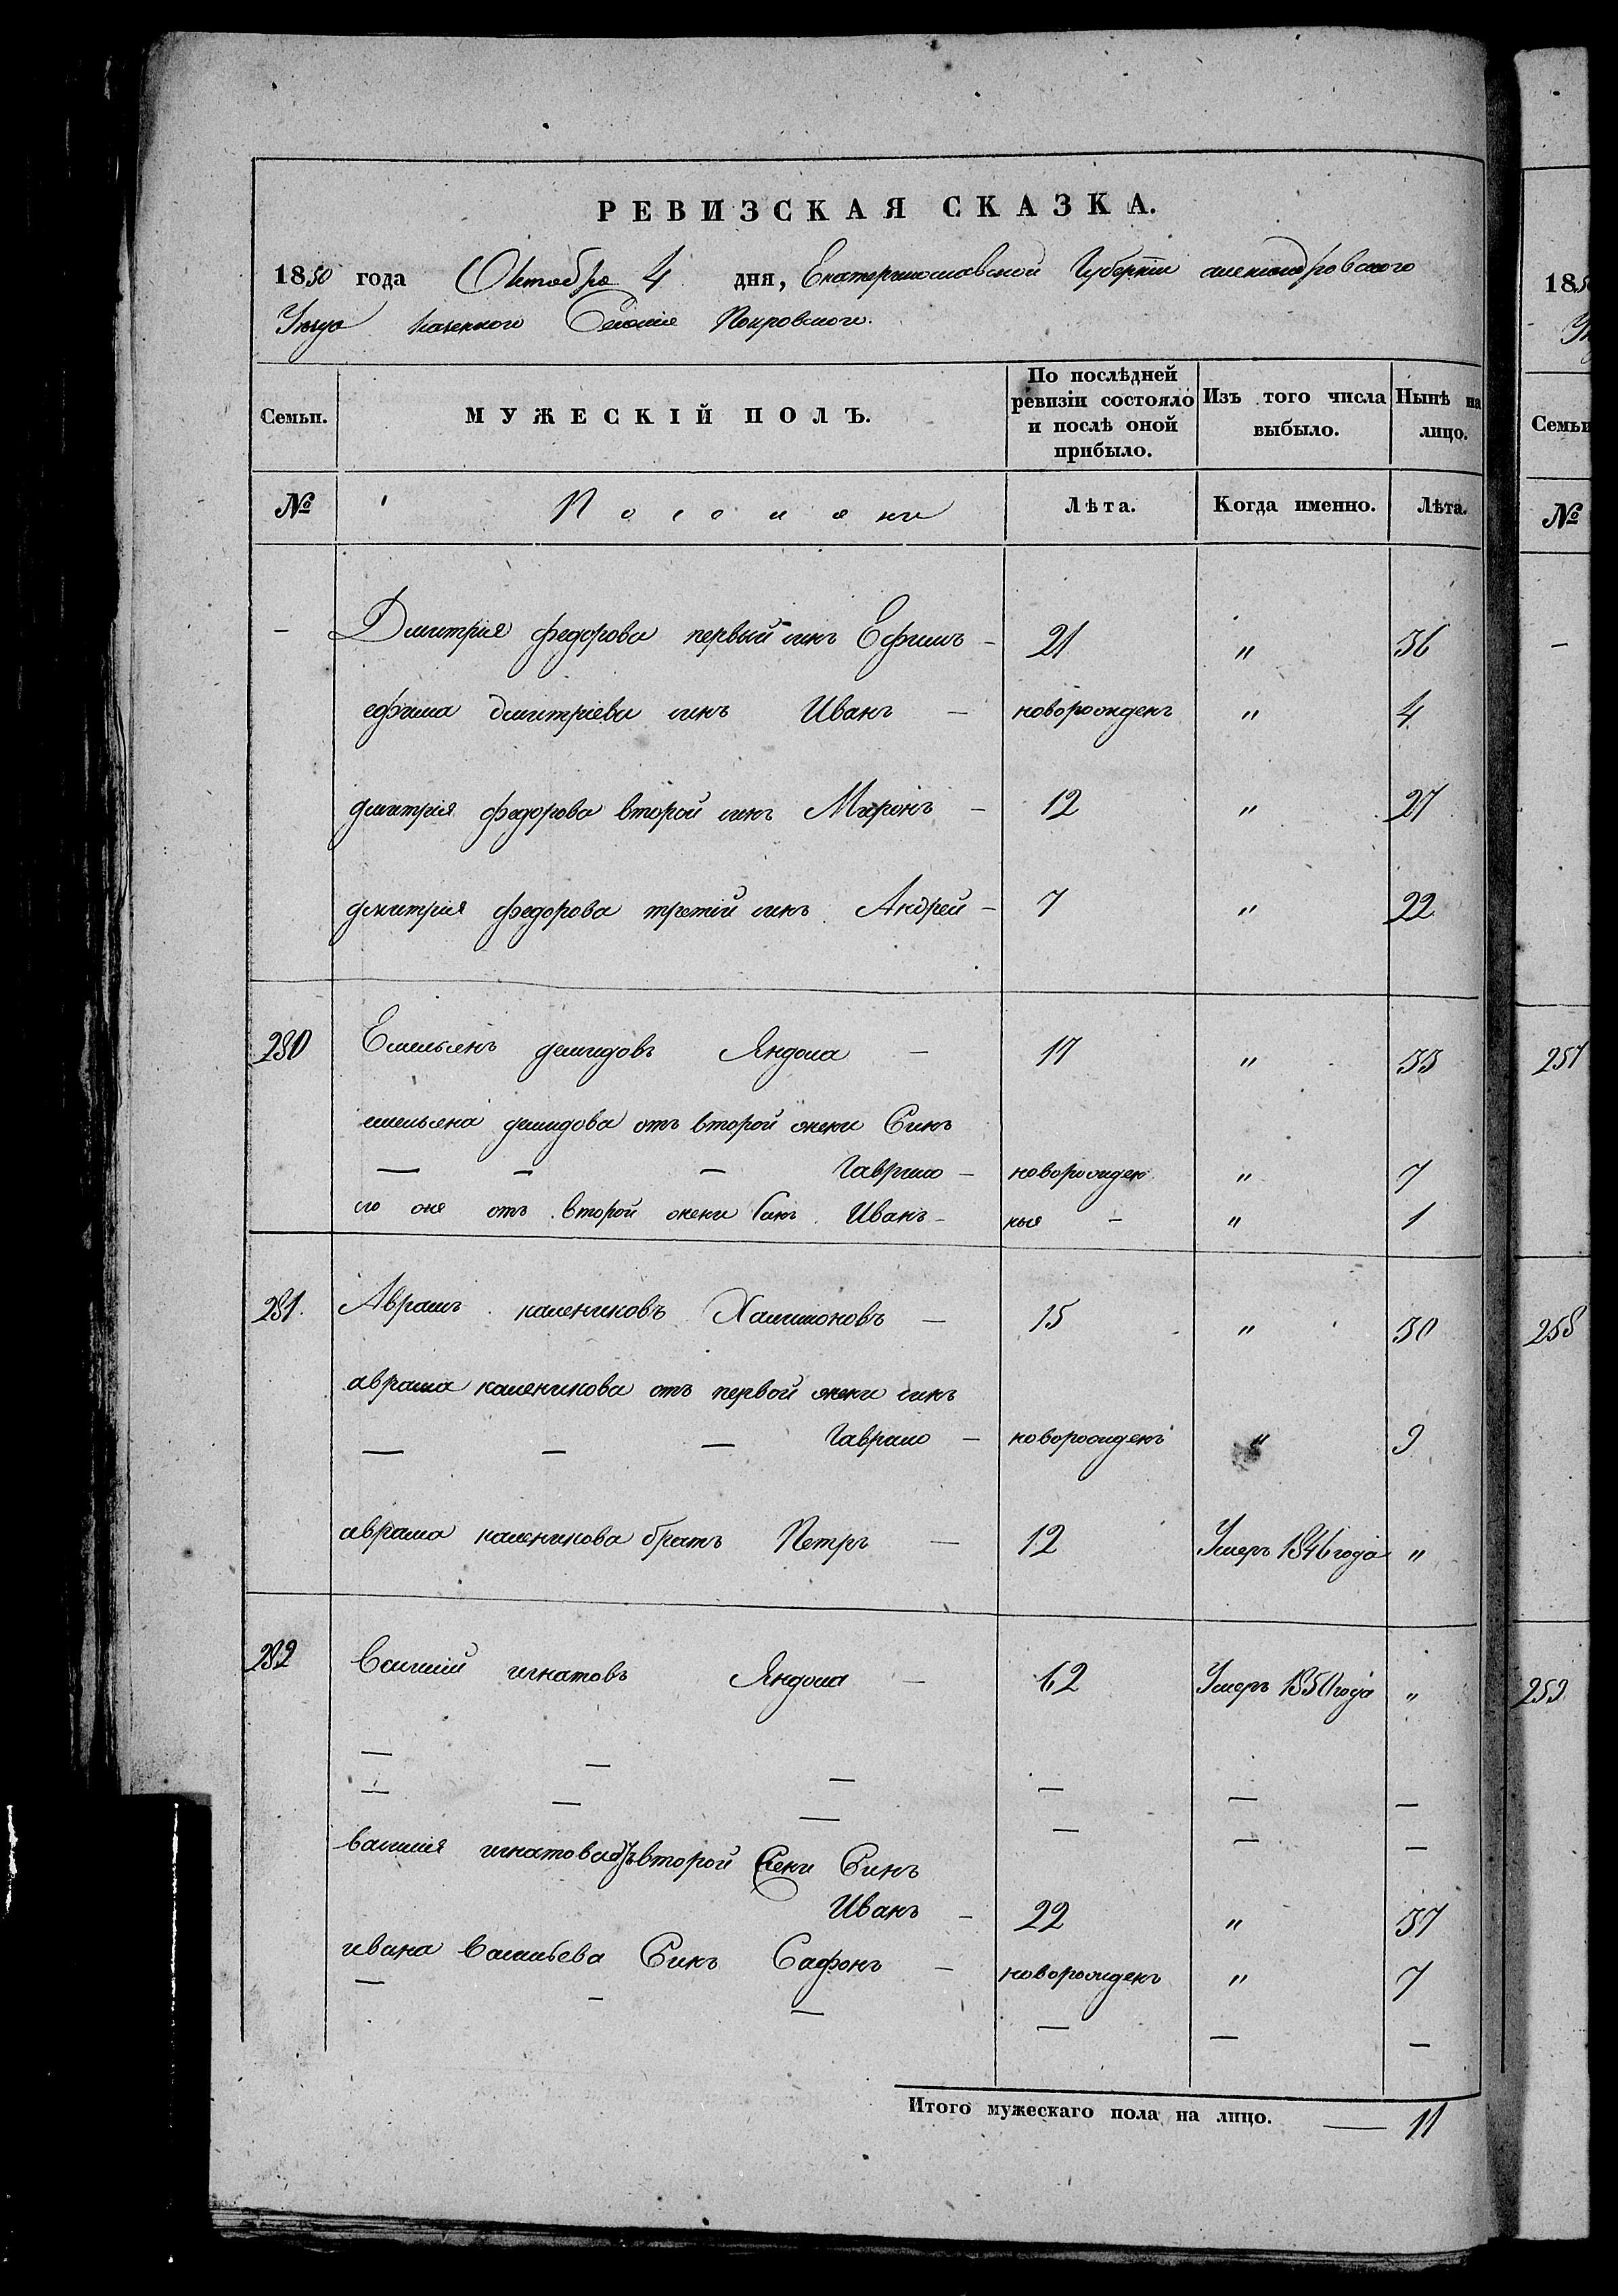 РЕВИЗСКАЯ СКАЗКА.
1850 года Октября 4 дня, Екатеринославской Губернiи александровского
Уезда казенного Селенiя Покровского.
Семьи. МУЖЕСКIЙ ПОЛЪ. По послѣдней ревизiи состояло и послѣ оной прибыло. Изъ того числа выбыло. Нынѣ на лицо.
№ Поселяне Лѣта. Когда именно. Лѣта.
— Дмитрия федорова первый синъ Ефимъ — 21 " 36
ефима дмитрiева синъ Иванъ — новорожденъ " 4
дмитрiя федорова второй синъ Миронъ — 12 " 27
дмитрия федорова третiй синъ Андрей — 7 " 22
280 Емельянъ демидовъ Яндола — 17 " 33
емельяна демидова отъ второй жени Синъ
— — — Гаврило — новорожден " 7
его же отъ второй жени Синъ Иванъ — ныя — " 1
281. Аврамъ калениковъ Халимоновъ — 15 " 30
аврама каленикова отъ первой жени синъ
— — — Гаврило — новорожденъ " 9
аврама каленикова братъ Петръ — 12 Умеръ 1846 года "
282 Василий игнатовъ Яндола — 62 Умеръ 1850 года "
— — — — — —
— — — — — —
василия игнатова отъ второй жени Синъ
Иванъ — 22 " 37
ивана васильева Синъ Сафонъ — новорожденъ " 7
— — — — — —
Итого мужескаго пола на лицо. — 11
1850
Семьи
№
—
257
258
259